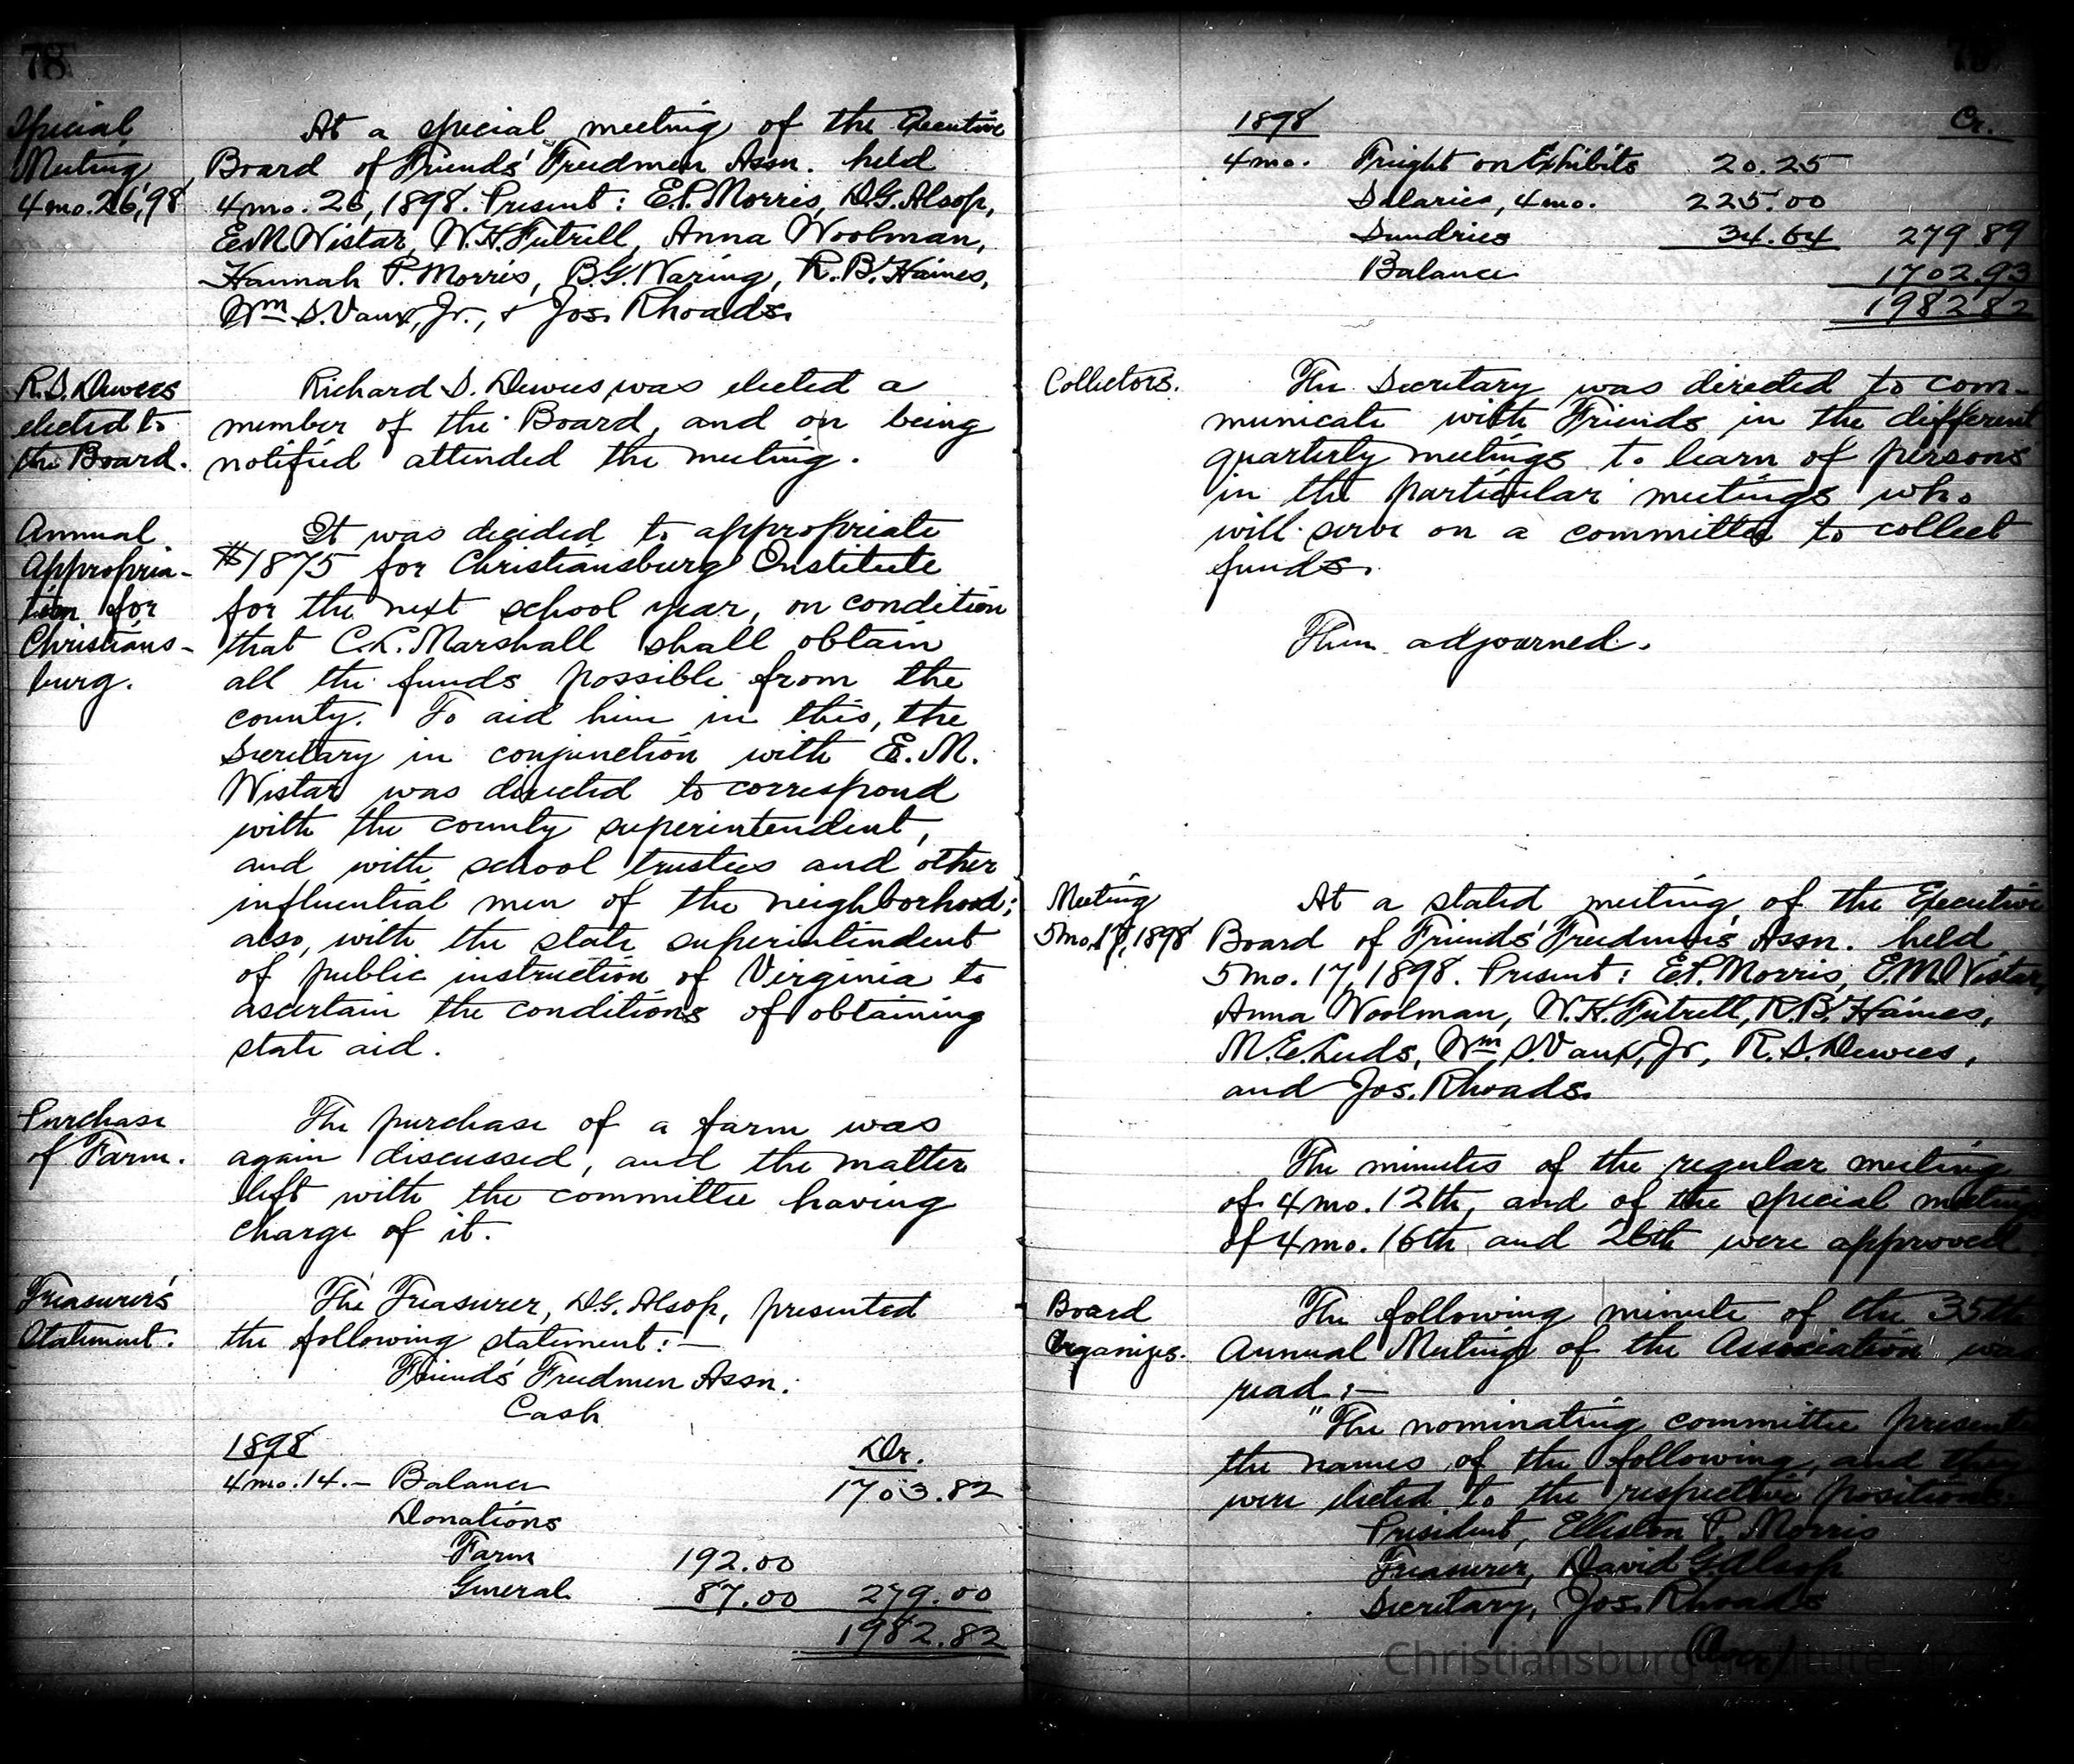 78
Special
Meeting
4 mo. 26, '98
At a special meeting of the Executive
Board of Friends' Freedmen Assn. held
4 mo. 26, 1898. Present: E.P. Morris, D.G. Alsop,
E.M. Wistar, W.H. Futrell, Anna Woolman,
Hannah P. Morris, B.G. Waring, R.B. Haines,
Wm S. Vaux, Jr., & Jos. Rhoads.
R.S. Dewees
elected to
the Board.
Richard S. Dewees was elected a
member of the Board, and on being
notified attended the meeting.
Annual
Appropria-
tion for
Christians-
burg.
It was decided to appropriate
$1875 for Christiansburg Institute
for the next school year, on condition
that C.L. Marshall shall obtain
all the funds possible from the
county. To aid him in this, the
Secretary in conjunction with E.M.
Wistar was directed to correspond
with the county superintendent,
and with school trustees and other
influential men of the neighborhood;
also, with the state superintendent
of public instruction of Virginia to
ascertain the conditions of obtaining
state aid.
Purchase
of Farm.
The purchase of a farm was
again discussed, and the matter
left with the committee having
charge of it.
Treasurer's
Statement.
The Treasurer, D.G. Alsop, presented
the following statement:—
Friends' Freedmen Assn.
Cash
1898 Dr.
4 mo. 14.— Balance 1703.82
Donations
Farm 192.00
General 87.00 279.00
1982.82
79
1898 Cr.
4 mo. Freight on Exhibits 20.25
Salaries, 4 mo. 225.00
Sundries 34.64 279 89
Balance 1702.93
1982 82
Collectors.
The Secretary was directed to com-
municate with Friends in the different
quarterly meetings to learn of persons
in the particular meetings who
will serve on a committee to collect
funds.
Then adjourned.
Meeting
5 mo. 17, 1898
At a stated meeting of the Executive
Board of Friends' Freedmen's Assn. held
5 mo. 17, 1898. Present: E.P. Morris, E.M. Wistar,
Anna Woolman, W.H. Futrell, R.B. Haines,
M.E. Leeds, Wm S. Vaux, Jr, R.S. Dewees,
and Jos. Rhoads.
The minutes of the regular meeting
of 4 mo. 12th, and of the special meeting
of 4 mo. 16th, and 26th were approved.
Board
Organizes.
The following minute of the 35th
Annual Meeting of the Association was
read:—
"The nominating committee present
the names of the following, and they
were elected to the respective positions:
President, Elliston P. Morris
Treasurer, David G. Alsop
Secretary, Jos. Rhoads
(Over)
Christiansburg Institute